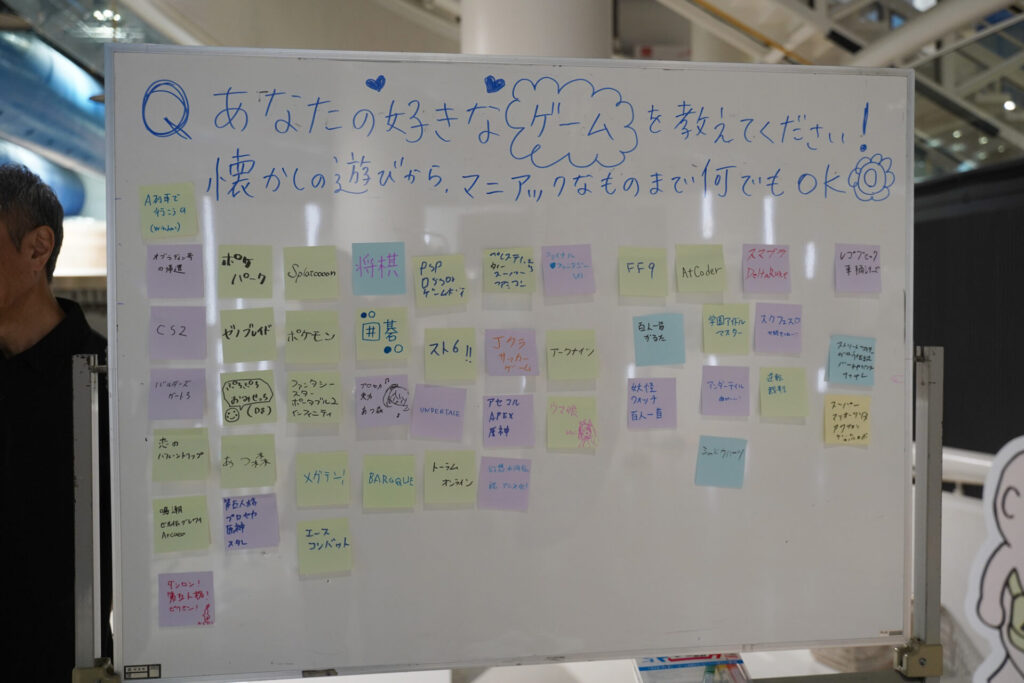 Q あなたの好きなゲームを教えてください!
懐かしの遊びから、マニアックなものまで何でもOK
A列車で
行こう9
(Windows)
オブラディン号
の帰還
ポケ
パーク
Splatoooon
将棋
PSP
ゲームボーイ
スーパー
ファミコン
ファイナル
ファンタジー
FF9
AtCoder
スマブラ
Deltarune
CS2
ゼノブレイド
ポケモン
囲碁
スト6!!
Jクラ
サッカー
ゲーム
アークナイツ
百人一首
かるた
学園アイドル
マスター
スクフェス
バルダーズ
ゲート3
ぱらぱら
おみせっち
(DS)
ファンタシー
スター
ポータブル2
インフィニティ
プロセカ
あつ森
UNDERTALE
アセコル
APEX
原神
ウマ娘
妖怪
ウォッチ
百人一首
アンダーテイル
逆転
裁判
スーパー
恋の
あつ森
メガテン!
BAROQUE
トーラム
オンライン
鳴潮
Arcaea
第五人格
プロセカ
原神
スタレ
エース
コンバット
ダンロン!
第五人格!
ピクミン!